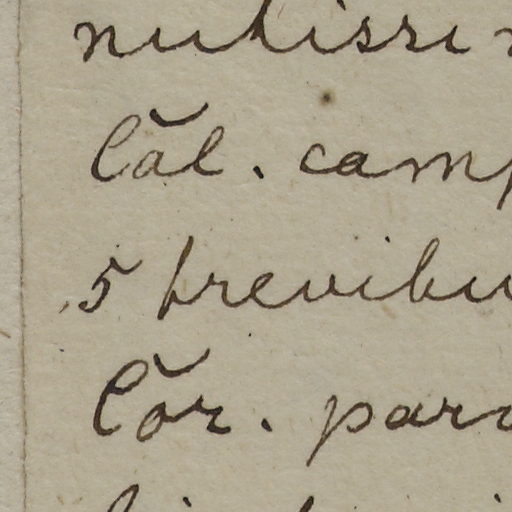 nudissi
Căl. camp
5 brevibu
Cŏr. parv